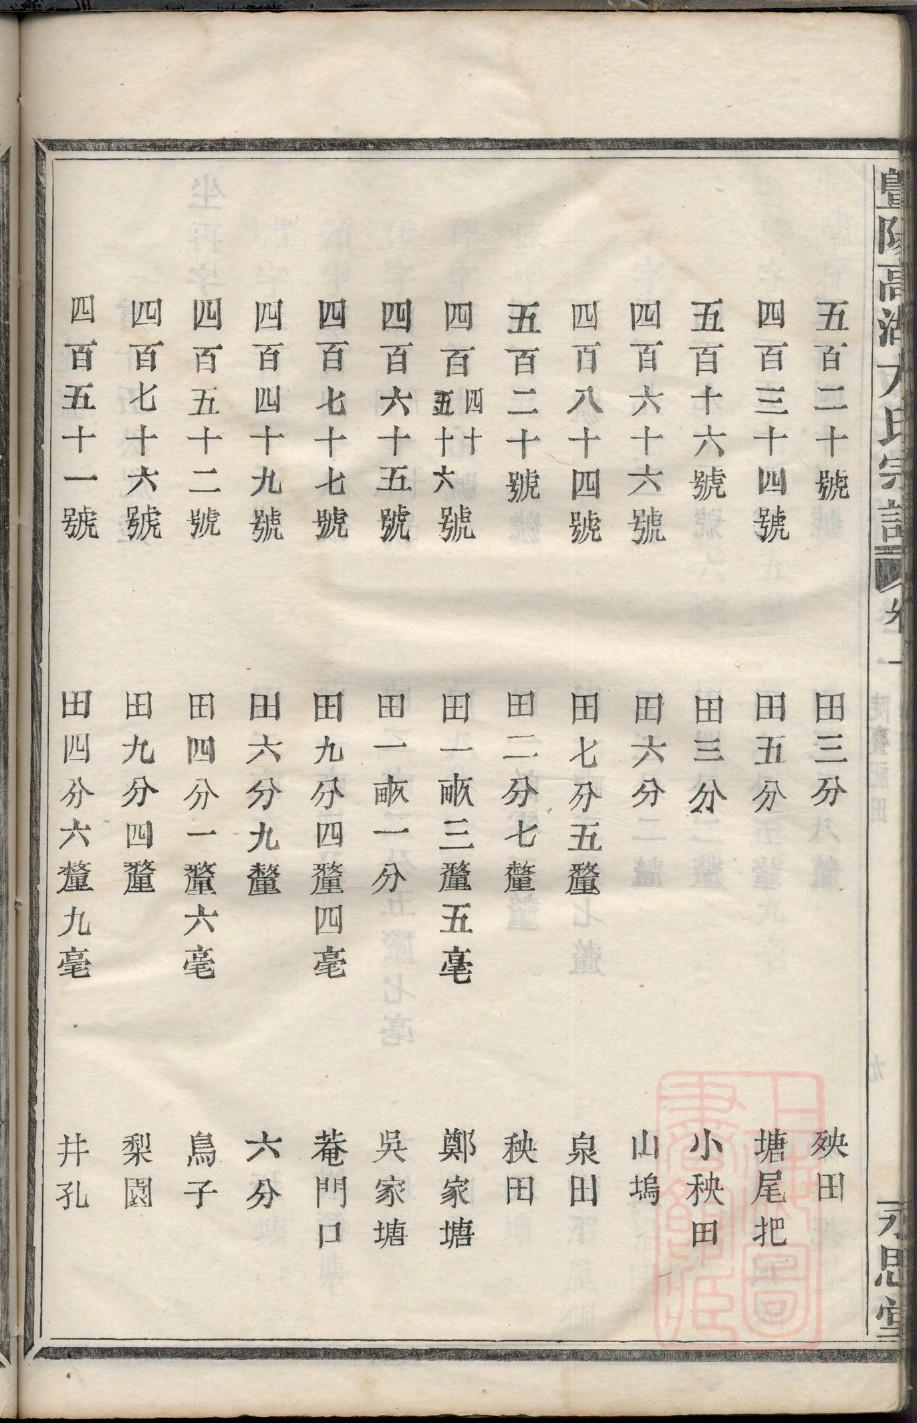 暨陽高湖方氏宗譜 卷一 永思堂
五百二十號 田三分 殃田
四百三十四號 田五分 塘尾把
五百十六號 田三分 小秧田
四百六十六號 田六分 山塢
四百八十四號 田七分五釐 泉田
五百二十號 田二分七釐 秧田
四百四十五十六號 田一畝三釐五毫 鄭家塘
四百六十五號 田一畝一分 吳家塘
四百七十七號 田九分四釐四毫 菴門口
四百四十九號 田六分九釐 六分
四百五十二號 田四分一釐六毫 鳥子
四百七十六號 田九分四釐 梨園
四百五十一號 田四分六釐九毫 井孔